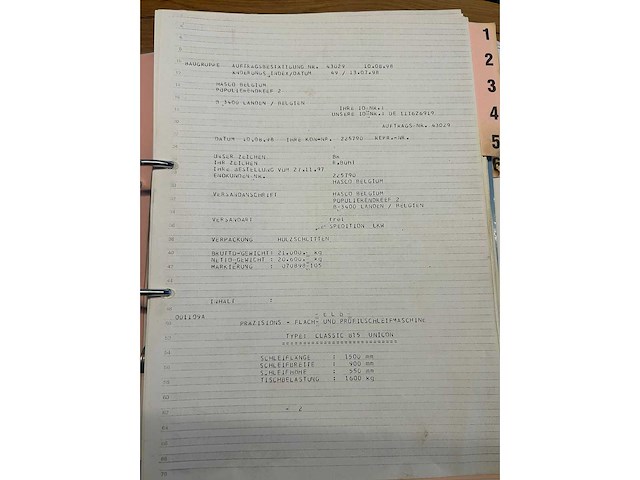 BAUGRUPPE AUFTRAGSBESTATIGUNG NR. 43029 10.08.98
ANDERUNGS_INDEX/DATUM 49 / 13.07.98
HASCO BELGIUM
POPULIERENDREEF 2
B-3400 LANDEN / BELGIEN
IHRE ID-NR.:
UNSERE ID-NR.: DE 111626919
AUFTRAGS-NR. 43029
DATUM 10.08.98 IHRE KOM-NR. 225790 REPR.-NR.
UNSER ZEICHEN
IHR ZEICHEN
IHRE BESTELLUNG VOM 21.11.97
ENDKUNDEN-NR. 225790
HASCO BELGIUM
VERSANDANSCHRIFT HASCO BELGIUM
POPULIERENDREEF 2
B-3400 LANDEN / BELGIEN
VERSANDART frei
SPEDITION LKW
VERPACKUNG HOLZSCHLITTEN
BRUTTO-GEWICHT: 21.000,- kg
NETTO-GEWICHT : 20.600,- kg
MARKIERUNG : 070898-105
INHALT :
001109A - E L B -
PRAZISIONS - FLACH- UND PROFILSCHLEIFMASCHINE
TYPE: CLASSIC BTS UNICON
SCHLEIFLANGE : 1500 mm
SCHLEIFBREITE : 900 mm
SCHLEIFHOHE : 550 mm
TISCHBELASTUNG : 1600 kg
1
2
3
4
5
6